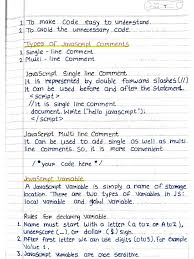 1. To make Code easy to understand.
2. To avoid the unnecessary code.
Types of JavaScript Comments
1. Single-line Comment
2. Multi-line Comment
JavaScript Single line Comment
It is represented by double forward slashes (//)
It can be used before and after the Statement.
<script>
// It is single line comment
document.write ("hello javascript");
</script>
JavaScript Multi line Comment
It can be used to add single as well as multi
line comments. So, it is more convenient
/* your code here */
JavaScript Variable
A JavaScript variable is simply a name of storage
location. There are two types of variables in JS:
local variable and global variable.
Rules for declaring variable.
1. Name must start with a letter (a to z or A to Z),
underscore (_), or dollar ($) sign.
2. After first letter we can use digits (0 to 9), for
Value 1.